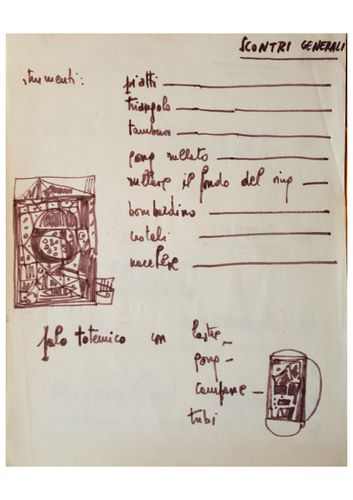 SCONTRI GENERALI
strumenti: piatti
triangolo
tamburo
gong rullato
rullare il fondo del ring
bombardino
crotali
nacchere
palo totemico con lastre
gong
campane
tubi